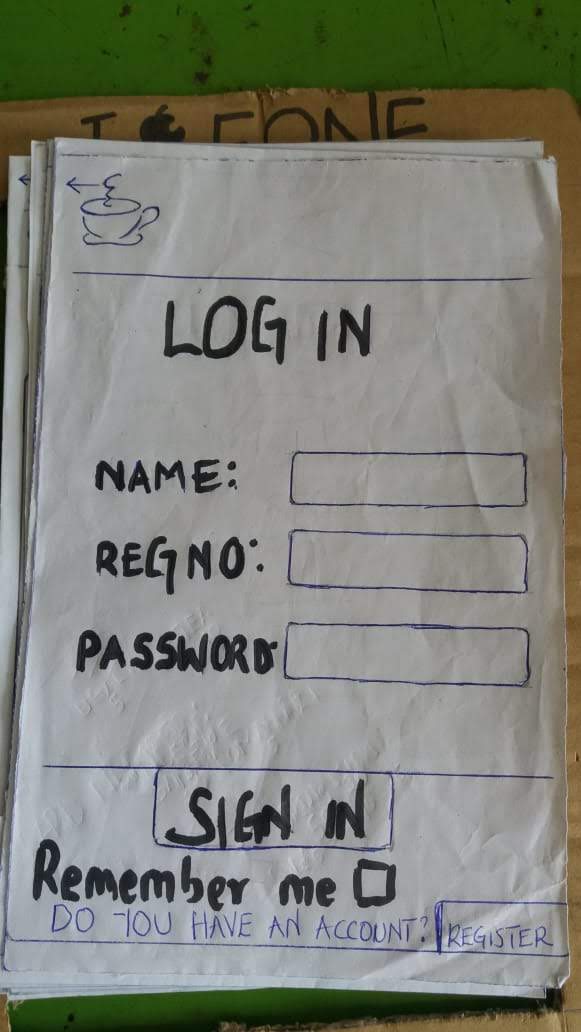 I FONE
LOG IN
NAME:
REG NO:
PASSWORD:
SIGN IN
Remember me
DO YOU HAVE AN ACCOUNT? REGISTER